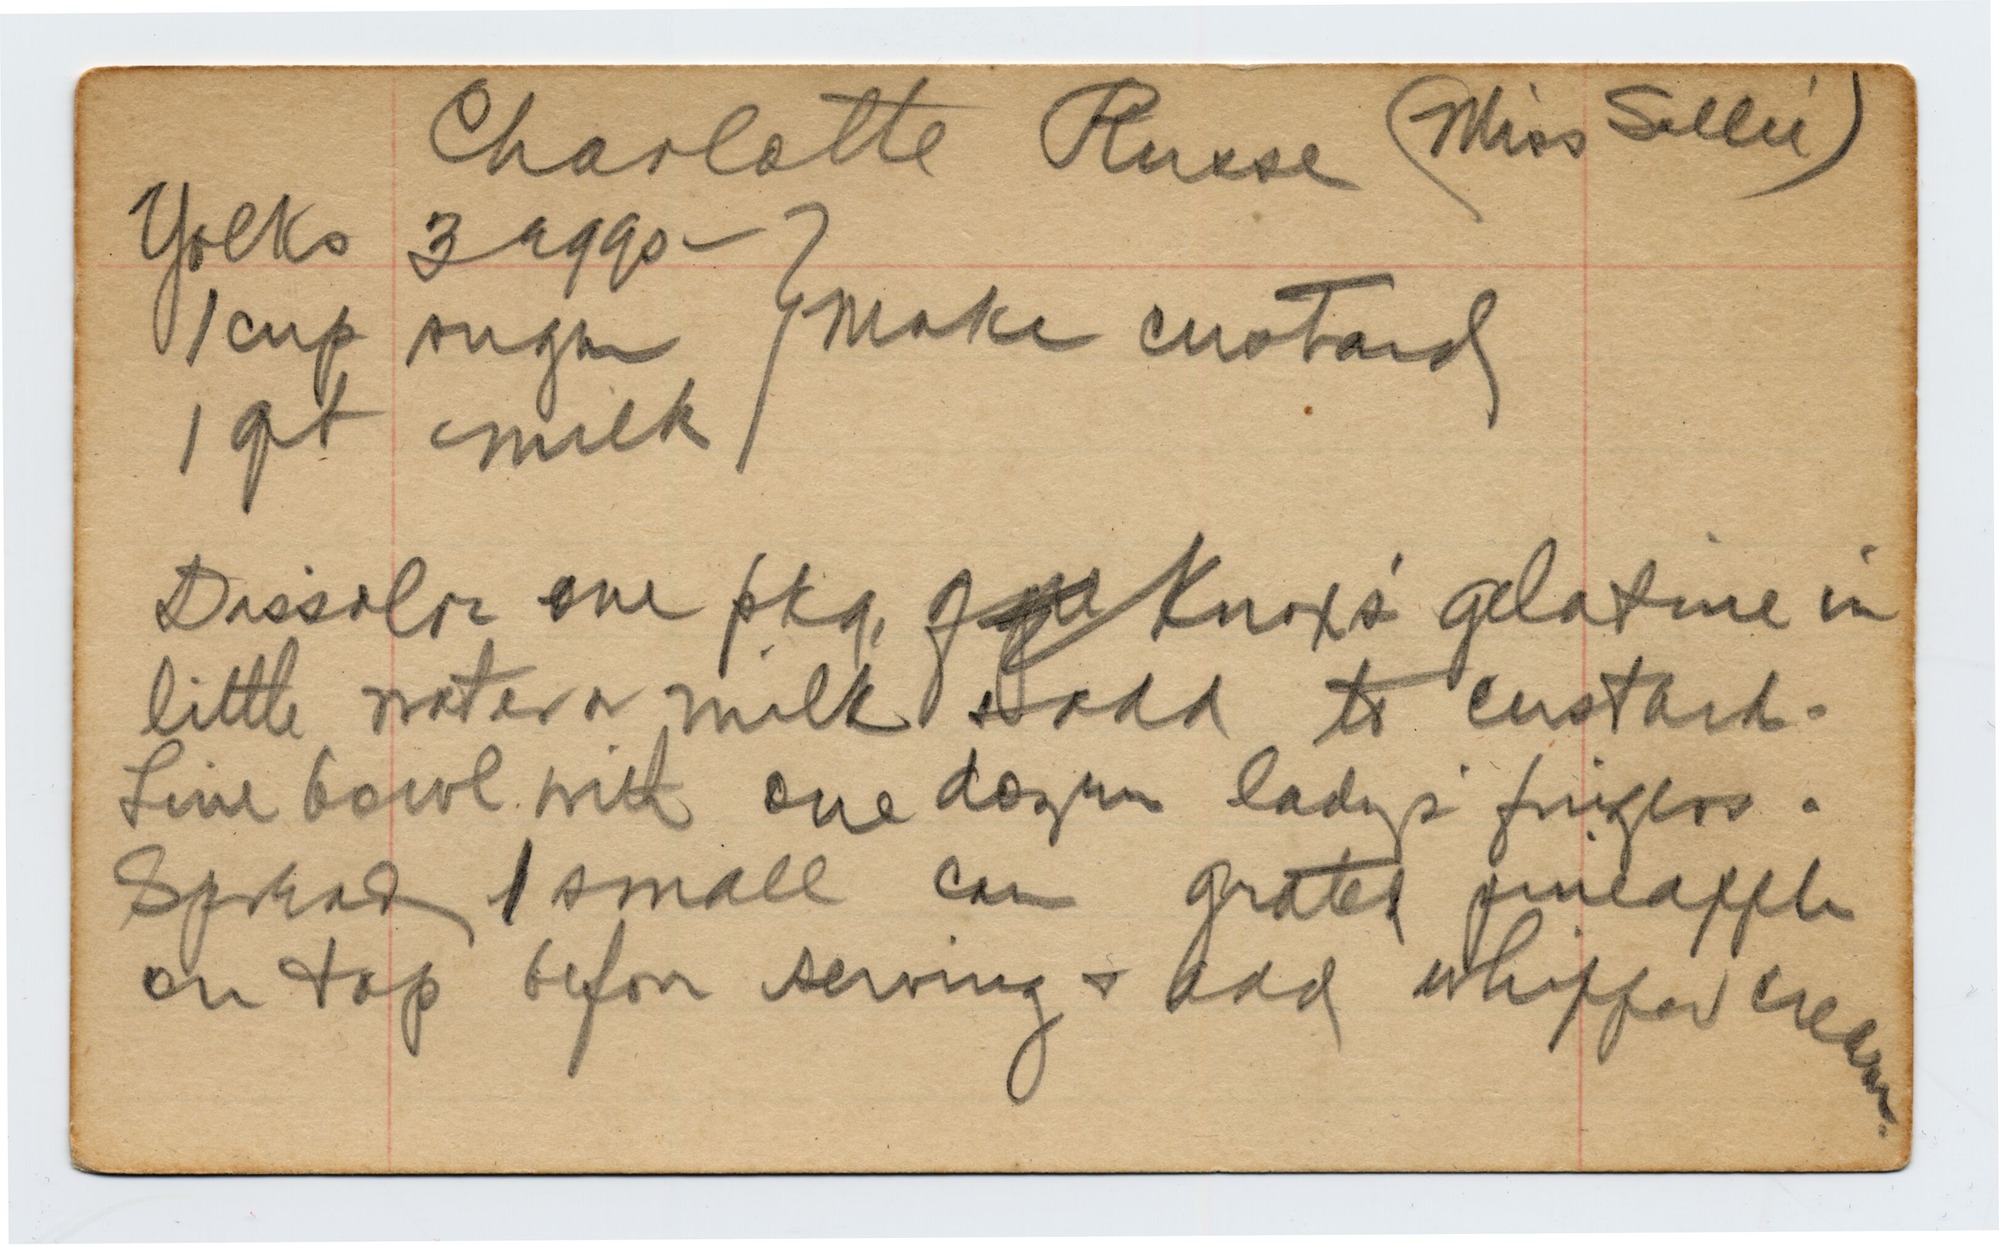 Charlotte Russe (Miss Sallie)
Yolks 3 eggs —
1 cup sugar } Make custard
1 qt milk
Dissolve one pkg. of Knox's gelatine in
little water or milk & add to custard.
Line bowl with one dozen lady's fingers.
Spread 1 small can grated pineapple
on top before serving & add whipped cream.